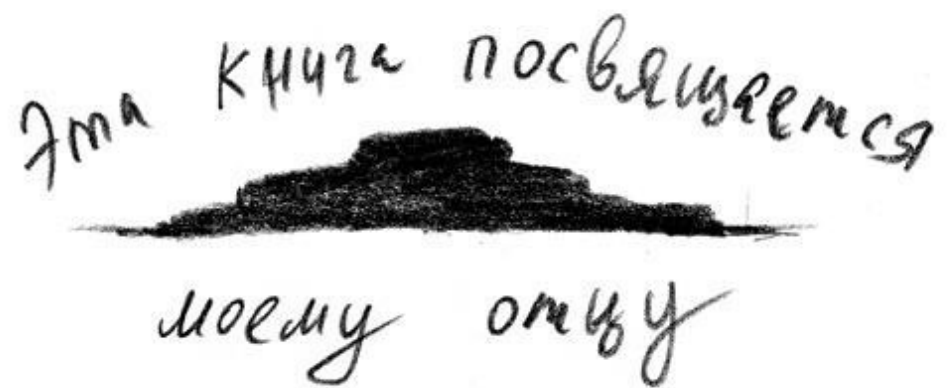 Эта книга посвящается
моему отцу